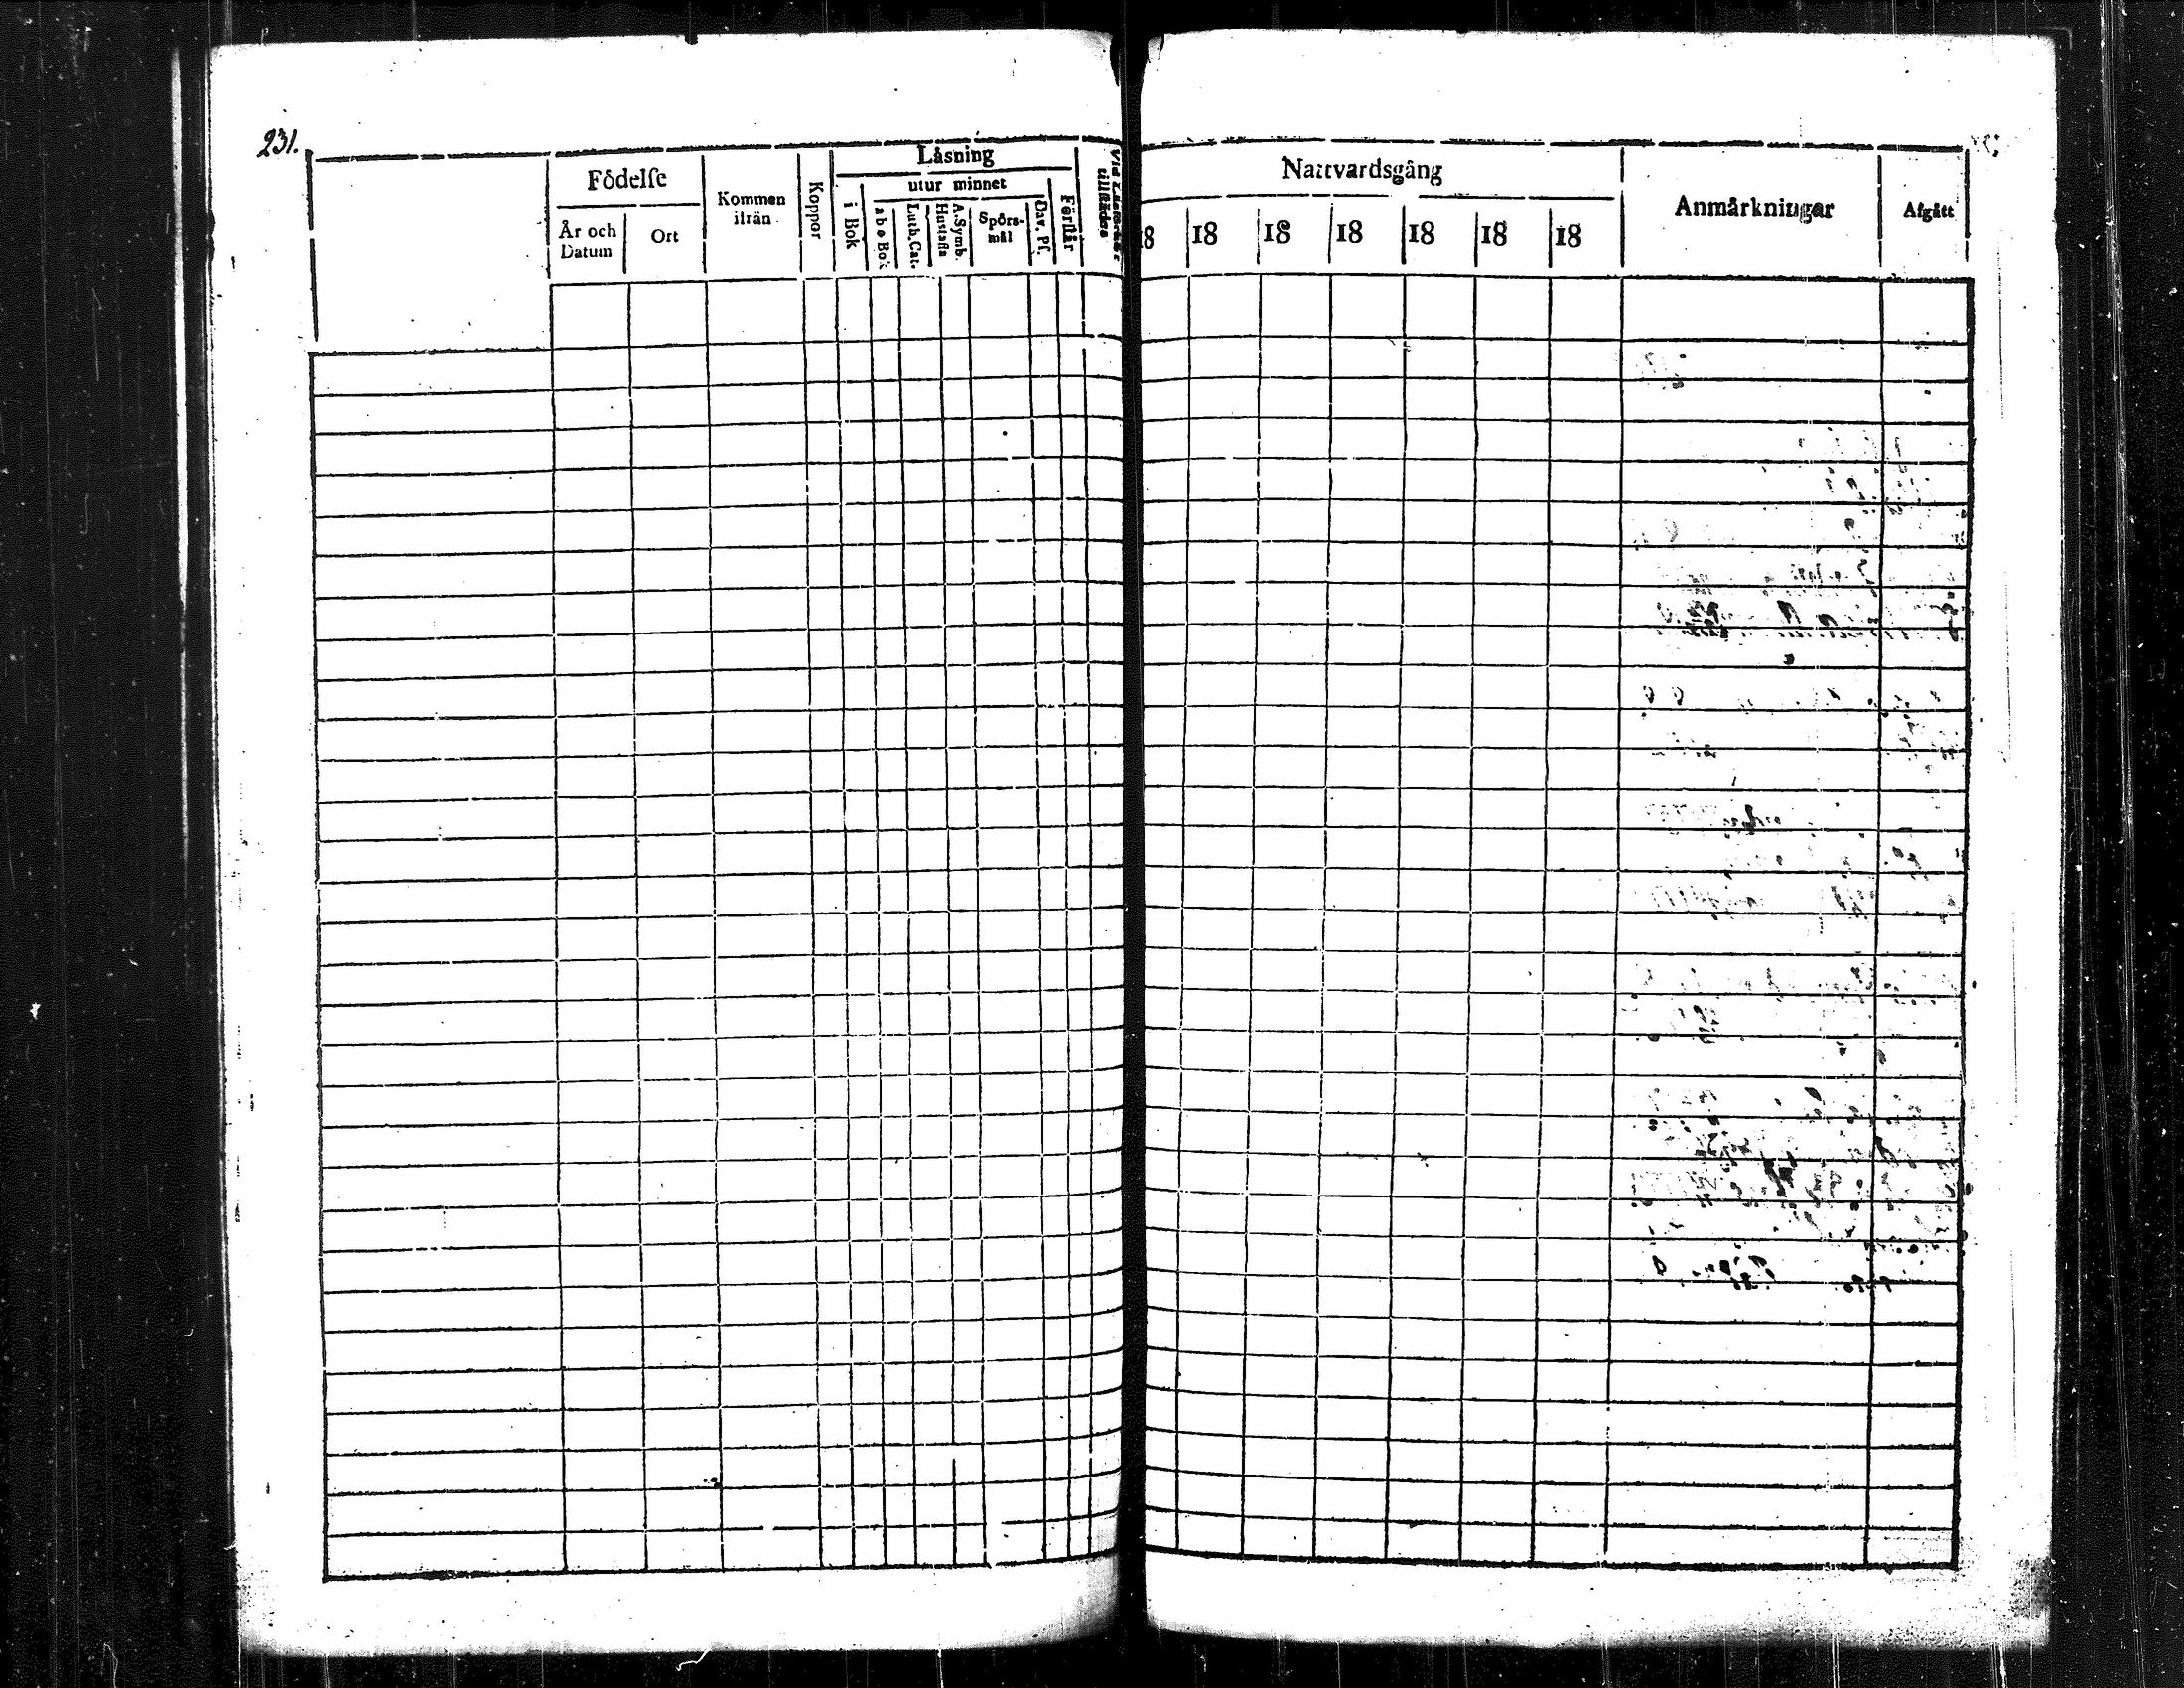 231.
Födelse
År och Datum
Ort
Kommen ifrån
Koppor
Läsning
i Bok
utur minnet
a b c Bok
Luth. Cat.
A. Symb. Hustafla
Spörs-mål
Dav. Ps.
Förstår
Vid tillstädes
Nattvardsgång
8 18 18 18 18 18 18
Anmärkningar
Afgått